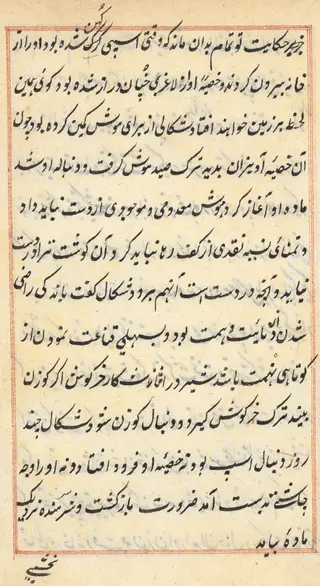 کهن
خر بر حکایت تو تمام بدان ماند که وقتی اسپی کرکین شده بود او را از
خانه بیرون کردند و خصیهٔ او از لاغری چنان دراز شده بود کوئی همین
لحظه بر زمین خواهند افتاد شکالی از برای موش کمین کرده بود چون
آن خصیهٔ آویزان بدید ترک صید موش گرفت و دنباله او شد
ماده او آغاز کرد موش معدی و موجودی از دست نباید داد
و تمنای نسیه نقدی از کف رها نباید کرد و آن کوشت ترا و راست
نیاید و آنچه در دست است آنهم برود شکال کفت باندکی راضی
شدن از دنائت و همت بود و بسهلی قناعت نمودن از
کوتاهی نهمت باشد شیر در اثناء شکار خرکوش اکر کوزن
بیند ترک خرکوش کیرد و دنبال کوزن شود شکال چند
روز دنبال اسپ بود نه خصیهٔ او فرود افتاد و نه او را وجه
چاشنی بدست آمد ضرورت بازکشت و شرمنده نزدیک
مادهٔ بیامد
نخشبی